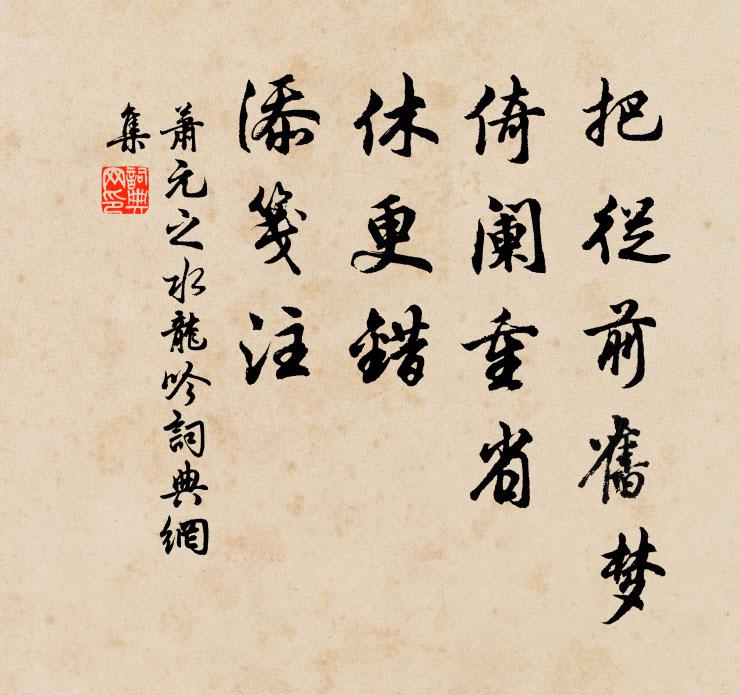 把從前舊梦
倚阑重省
休更錯
添箋注
蕭元之水龍吟詞典網
集
詞典网印